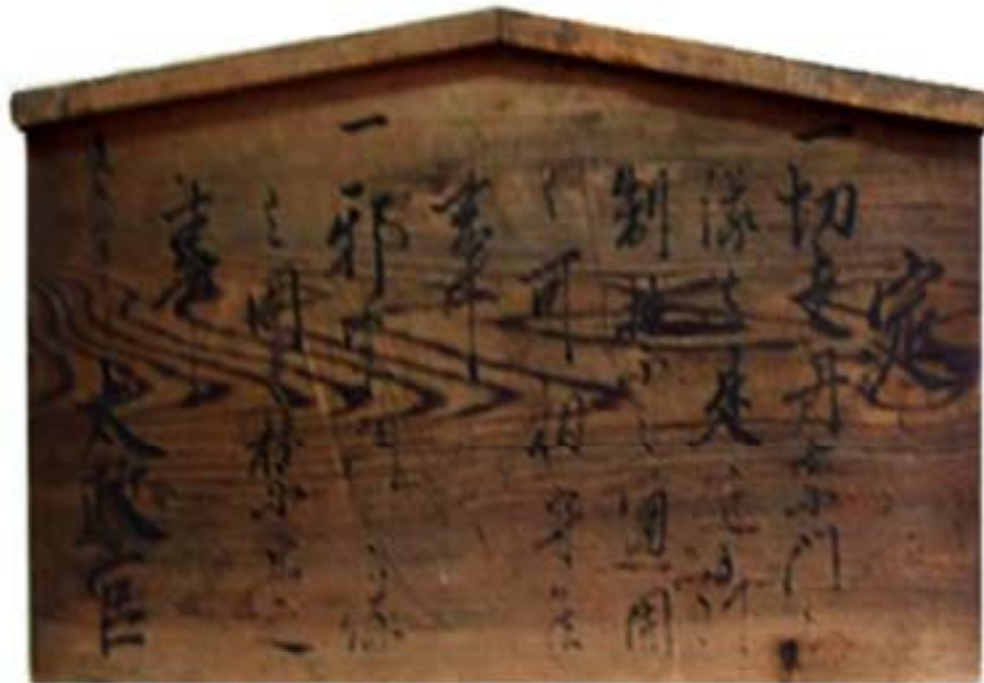 定
一 切支丹宗門之
儀是迄御
制禁之通固
く可相守
事
一 邪宗門之儀
固く
事
太政官